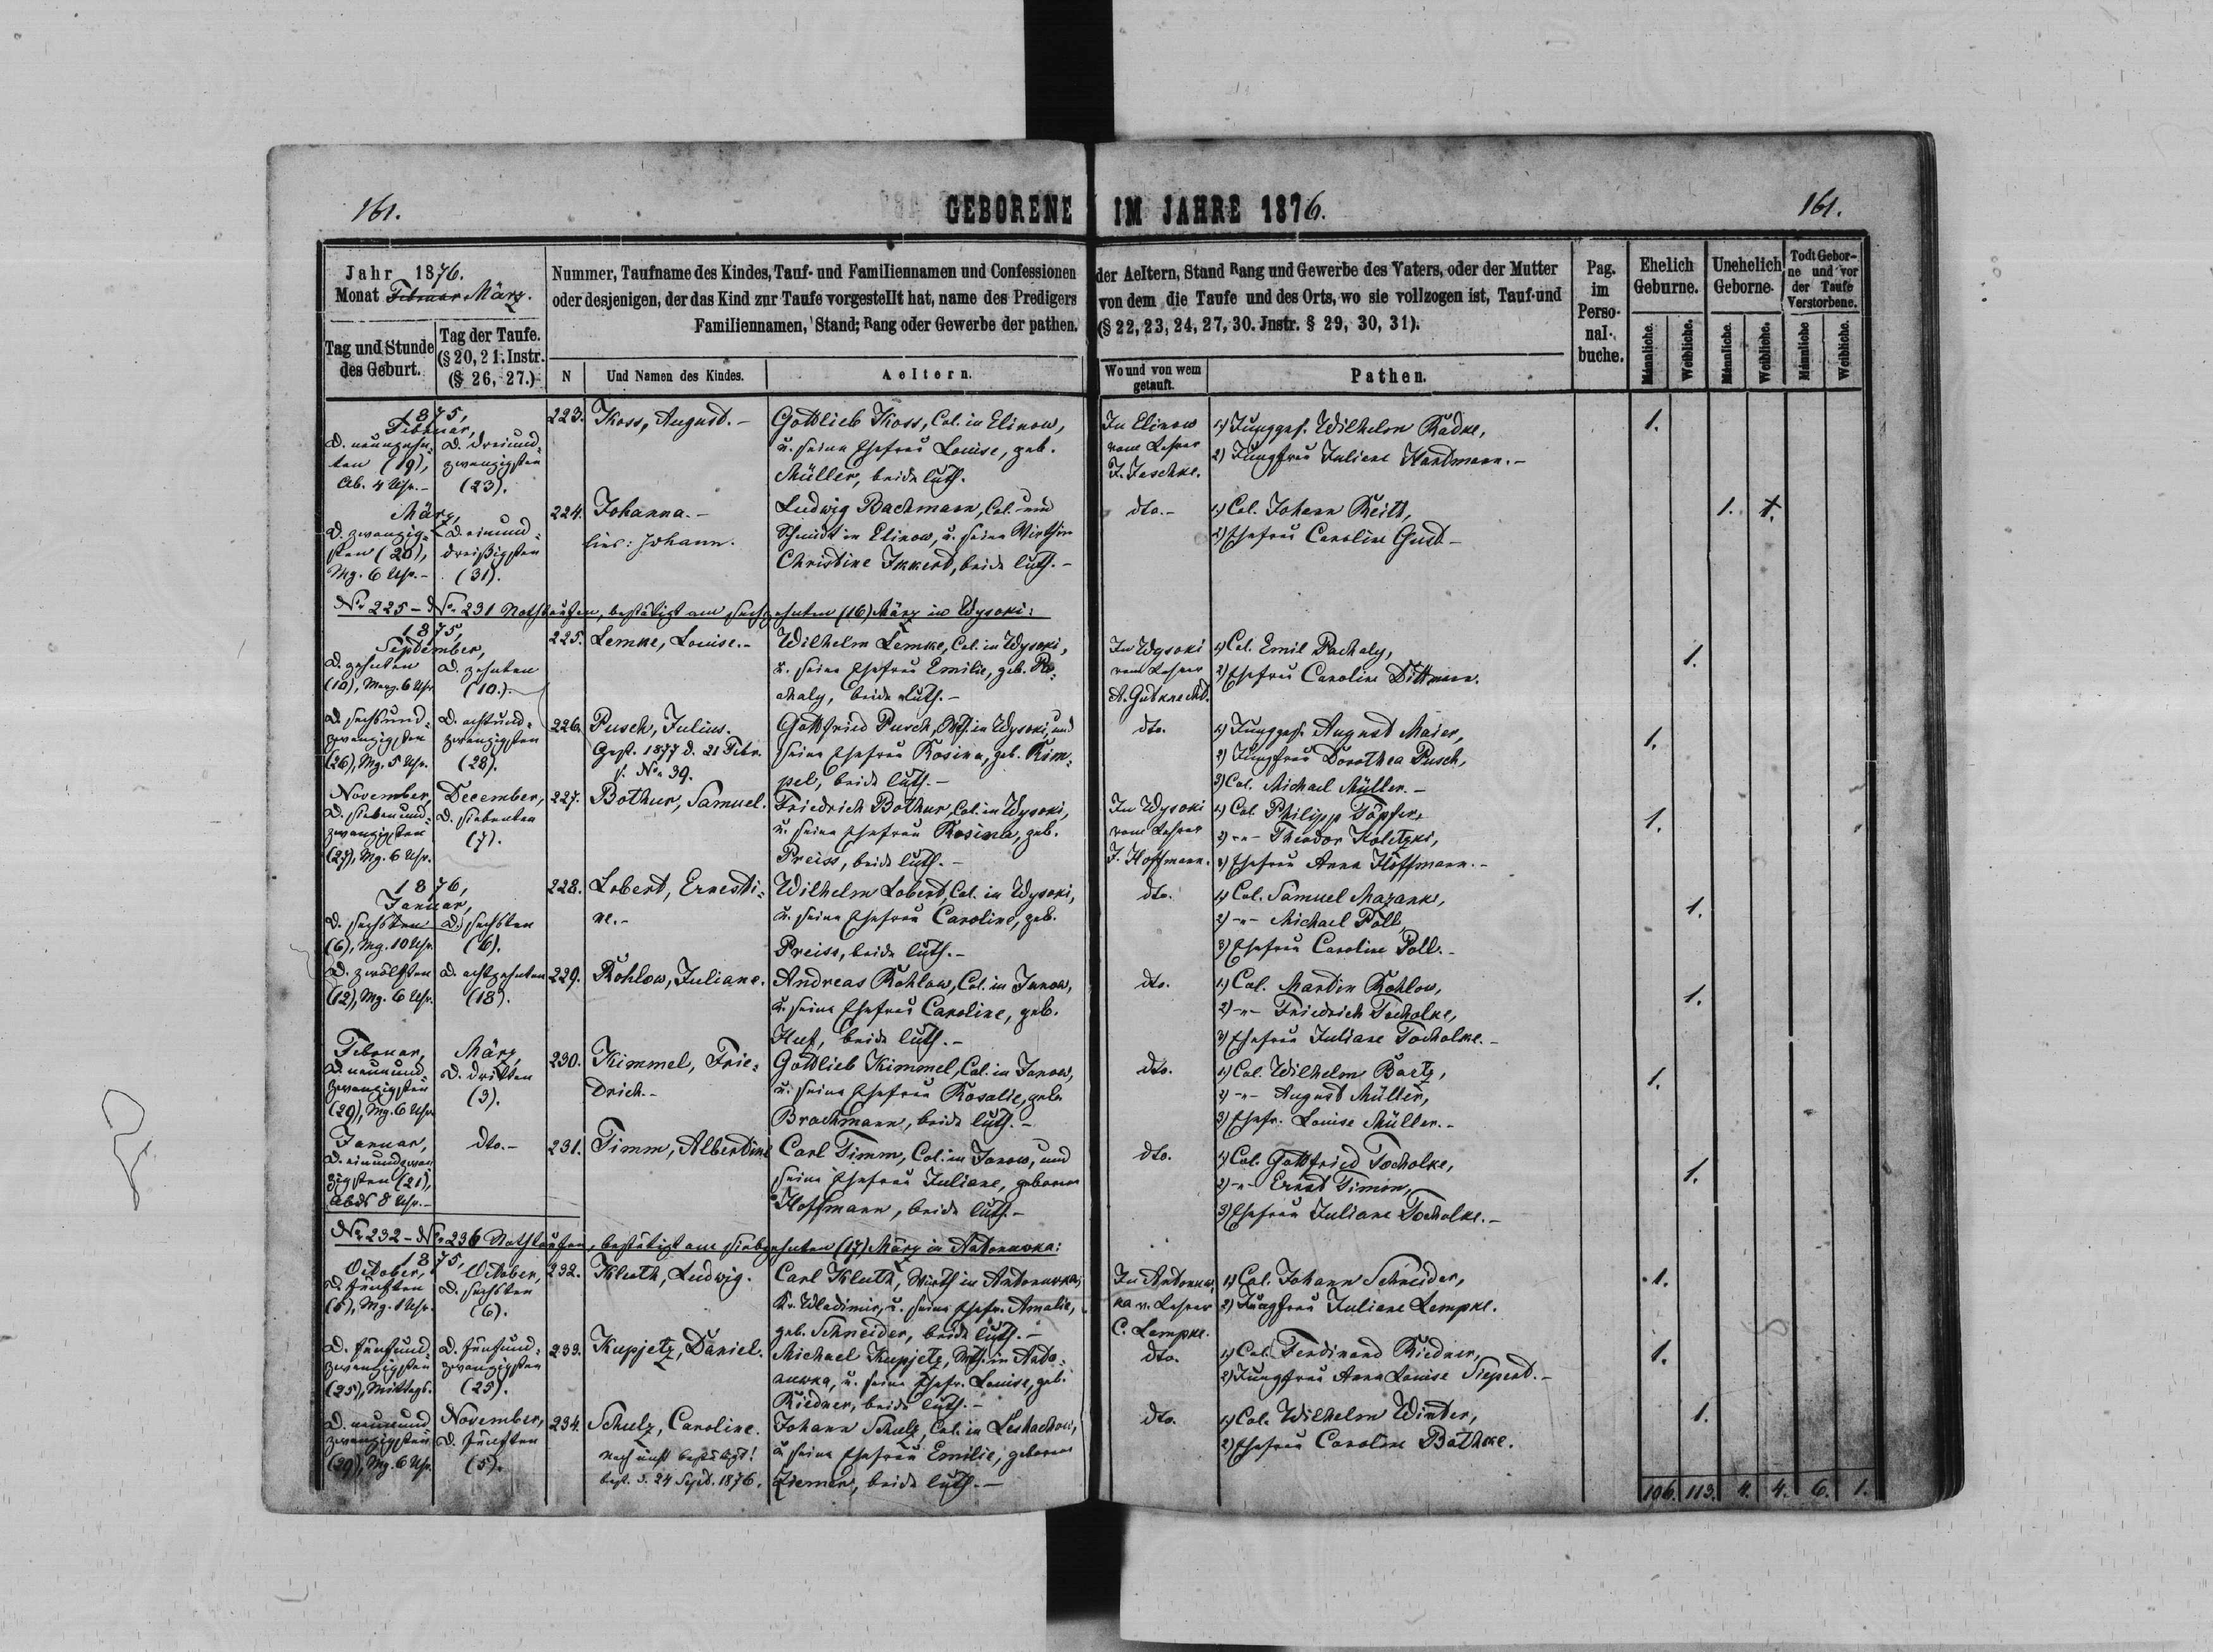 161.
GEBORENE IM JAHRE 1876.
161.
Jahr 1876.
Monat Februar März.
Nummer, Taufname des Kindes, Tauf- und Familiennamen und Confessionen der Aeltern, Stand Rang und Gewerbe des Vaters, oder der Mutter
oder desjenigen, der das Kind zur Taufe vorgestellt hat, name des Predigers von dem die Taufe und des Orts, wo sie vollzogen ist, Tauf-und
Familiennamen, Stand; Rang oder Gewerbe der pathen. (§ 22, 23, 24, 27, 30. Jnstr. § 29, 30, 31).
Tag und Stunde
des Geburt.
Tag der Taufe.
(§ 20, 21. Instr.
(§ 26, 27.)
N
Und Namen des Kindes.
Aeltern.
Wo und von wem
getauft.
Pathen.
Pag.
im
Perso-
nal-
buche.
Ehelich
Geburne.
Unehelich
Geborne.
Todt Gebor-
ne und vor
der Taufe
Verstorbene.
Männliche.
Weibliche.
Männliche.
Weibliche.
Männliche
Weibliche.
1875,
Februar,
D. neunzehn-
ten (19),
Ab. 4 Uhr.-
D. dreiund-
zwanzigsten
(23).
223.
Koss, August.-
Gottlieb Koss, Col. in Elinow,
u. seine Ehefrau Louise, geb.
Müller, beide luth.
In Elinow
vom Lehrer
J. Jeschke.
1) Junggef. Wilhelm Radke,
2) Jungfrau Juliane Hartmann.-
1.
März,
D. zwanzig-
sten (20),
Mg. 6 Uhr.-
D. einund-
dreißigsten
(31).
224.
Johanna.-
lies: Johann.
Ludwig Bachmann, Col. und
Schmidt in Elinow, u. seine Wirthin
Christine Ikkert, beide luth.-
dto.-
1) Col. Johann Keitt,
2) Ehefrau Caroline Gust-
1.
1.
No 225 - No 231 Nothtaufen, bestätigt am sechzehnten (16) März in Wysoki:
1875,
September,
D. zehnten
(10), Morg. 6 Uhr
D. zehnten
(10.).
225.
Lemke, Louise.-
Wilhelm Lemke, Col. in Wysoki,
u. seine Ehefrau Emilie, geb. Pa-
chaly, beide luth.-
In Wysoki
vom Lehrer
A. Gutknecht.
1) Col. Emil Pachaly,
2) Ehefrau Caroline Dittmann.
1.
D. sechsund-
zwanzigsten
(26), Mg. 5 Uhr.
D. achtund-
zwanzigsten
(28).
226.
Pusch, Julius.
Gest. 1877 d. 21 Febr.
s. No 39.
Gottfried Pusch, Wth. in Wysoki, und
seine Ehefrau Rosina, geb. Kim-
pel, beide luth.-
dto.
1) Junggef. August Maier,
2) Jungfrau Dorothea Pusch,
3) Col. Michael Müller.-
1.
November,
D. siebenund-
zwanzigsten
(27), Mg. 6 Uhr.
December,
D. siebenten
(7).
227.
Bothur, Samuel.
Friedrich Bothur, Col. in Wysoki,
u. seine Ehefrau Rosina, geb.
Preiss, beide luth.-
In Wysoki
vom Lehrer
J. Hoffmann.
1) Col. Philipp Töpfer,
2) -"- Theodor Koletzki,
3) Ehefrau Anna Hoffmann.-
1.
1876,
Januar,
D. sechsten
(6), Mg. 10 Uhr.
D. sechsten
(6).
228.
Lobert, Ernesti-
ne.-
Wilhelm Lobert, Col. in Wysoki,
u. seine Ehefrau Caroline, geb.
Preiss, beide luth.-
dto.
1) Col. Samuel Mazank,
2) -"- Michael Poll,
3) Ehefrau Caroline Poll.-
1.
D. zwölften
(12), Mg. 6 Uhr.
D. achtzehnten
(18).
229.
Rohlow, Juliane.
Andreas Rohlow, Col. in Janow,
u. seine Ehefrau Caroline, geb.
Huf, beide luth.-
dto.
1) Col. Martin Rohlow,
2) -"- Friedrich Tocholke,
3) Ehefrau Juliane Tocholke.-
1.
Februar,
D. neunund-
zwanzigsten
(29), Mg. 6 Uhr
März,
D. dritten
(3).
230.
Kimmel, Frie-
drich.-
Gottlieb Kimmel, Col. in Janow,
u. seine Ehefrau Rosalie, geb.
Brachmann, beide luth.-
dto.
1) Col. Wilhelm Bartz,
2) -"- August Müller,
3) Ehefr. Louise Müller.-
1.
Januar,
D. einundzwan-
zigsten (21),
Abds 8 Uhr.-
dto.-
231.
Timm, Albertine
Carl Timm, Col. in Janow, und
seine Ehefrau Juliane, geborene
Hoffmann, beide luth.-
dto.
1) Col. Gottfried Tocholke,
2) -"- Ernst Timm,
3) Ehefrau Juliane Tocholke.-
1.
No 232 - No 236 Nothtaufen, bestätigt am siebzehnten (17) März in Antonuwka:
1875,
October,
D. fünften
(5), Mg. 1 Uhr.
October,
D. sechsten
(6).
232.
Kluth, Ludwig.
Carl Kluth, Wirth in Antonuwka,
Kr. Wladimir, u. seine Ehefr. Amalie,
geb. Schneider, beide luth.-
In Antonuw-
ka v. Lehrer
C. Lempke.
1) Col. Johann Schneider,
2) Jungfrau Juliane Lempke.
1.
D. fünfund-
zwanzigsten
(25), Mittags.
D. fünfund-
zwanzigsten
(25).
233.
Kupjetz, Daniel.
Michael Kupjetz, Wth. in Anto-
nuwka, u. seine Ehefr. Louise, geb.
Riedner, beide luth.-
dto.
1) Col. Ferdinand Riedner,
2) Jungfrau Anna Louise Siepert.-
1.
D. neunund
zwanzigsten
(29), Mg. 6 Uhr.
November,
D. fünften
(5).
234.
Schulz, Caroline.
noch nicht bestätigt!
best. d. 24 Sept. 1876.
Johann Schulz, Col. in Leshachow,
u. seine Ehefrau Emilie, geborene
Ziemer, beide luth.-
dto.
1) Col. Wilhelm Winter,
2) Ehefrau Caroline Bathke.
1.
106. 113. 4. 4. 6. 1.